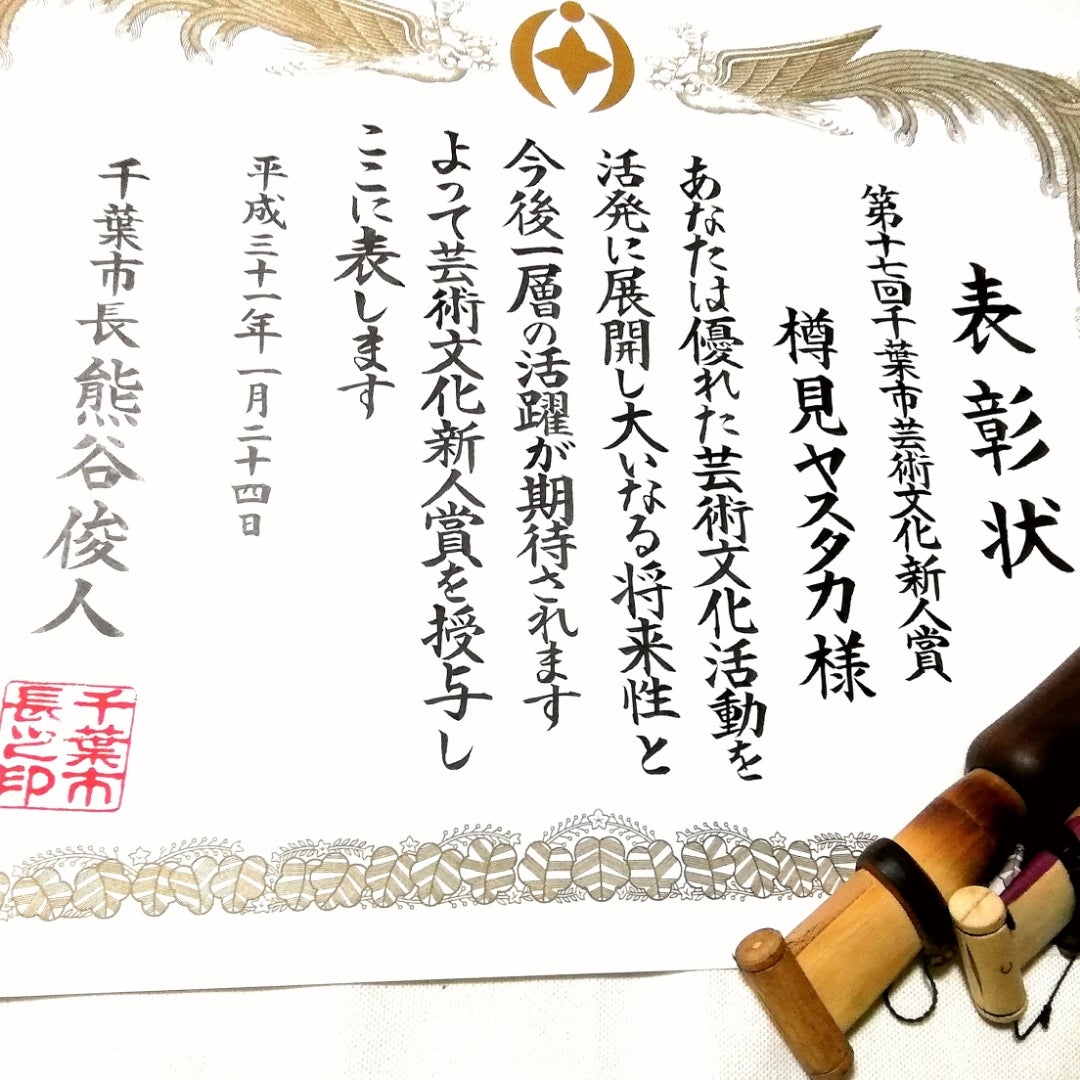 表彰状
第十七回千葉市芸術文化新人賞
樽見ヤスタカ様
あなたは優れた芸術文化活動を
活発に展開し大いなる将来性と
今後一層の活躍が期待されます
よって芸術文化新人賞を授与し
ここに表します
平成三十一年一月二十四日
千葉市長 熊谷俊人
千葉市
長之印